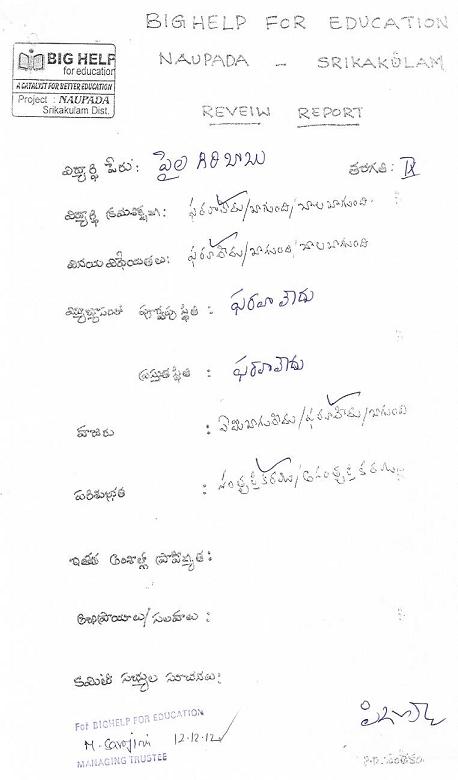 BIGHELP FOR EDUCATION
NAUPADA - SRIKAKULAM
BIG HELP
for education
A CATALYST FOR BETTER EDUCATION
Project : NAUPADA
Srikakulam Dist.
REVEIW REPORT
విద్యార్థి పేరు: పైల గిరిబాబు తరగతి: IX
విద్యార్థి క్రమశిక్షణ: ఫరవాలేదు/బాగుంది/చాలబాగుంది.
వినయ విధేయతలు: ఫరవాలేదు/బాగుంది/చాలబాగుంది
పూర్వపు స్థితి : ఫరవాలేదు
ప్రస్తుత స్థితి : ఫరవాలేదు
హాజరు : ఏమిబాగులేదు/ఫరవాలేదు/బాగుంది
పరిశుభ్రత : సంతృప్తికరము/అసంతృప్తికరము
ఇతర అంశాల్లో ప్రావీణ్యత :
అభిప్రాయాలు/సలహాలు :
కమిటీ సభ్యుల సూచనలు:
For BIGHELP FOR EDUCATION
M. Sarojini 12.12.12
MANAGING TRUSTEE